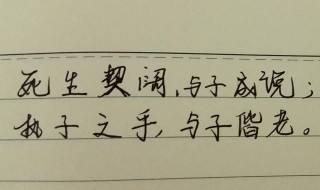 死生契阔，与子成说；
执子之手，与子偕老。